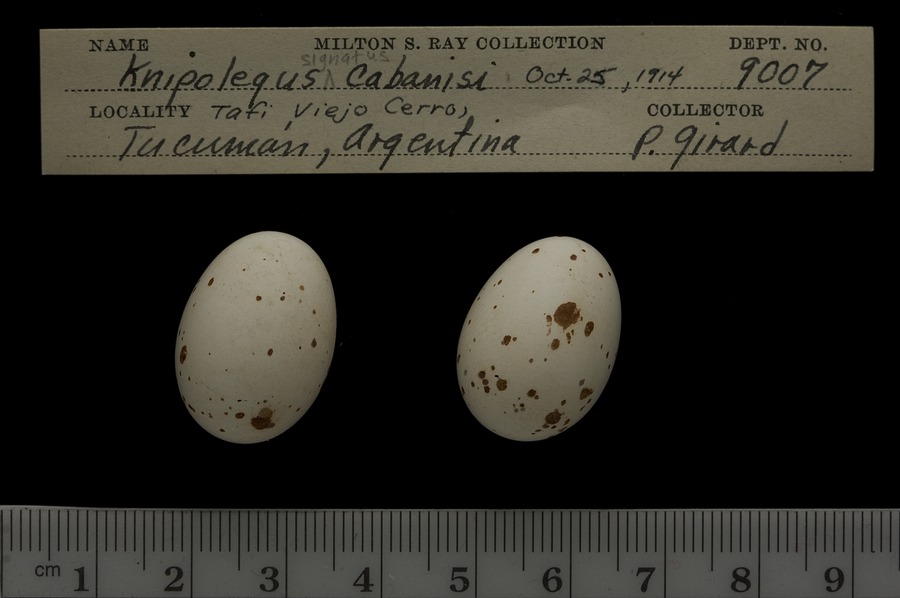 NAME MILTON S. RAY COLLECTION DEPT. NO.
signatus
Knipolegus ^ Cabanisi Oct. 25, 1914 9007
LOCALITY Tafi Viejo Cerro, COLLECTOR
Tucumán, Argentina P. Girard
cm 1 2 3 4 5 6 7 8 9